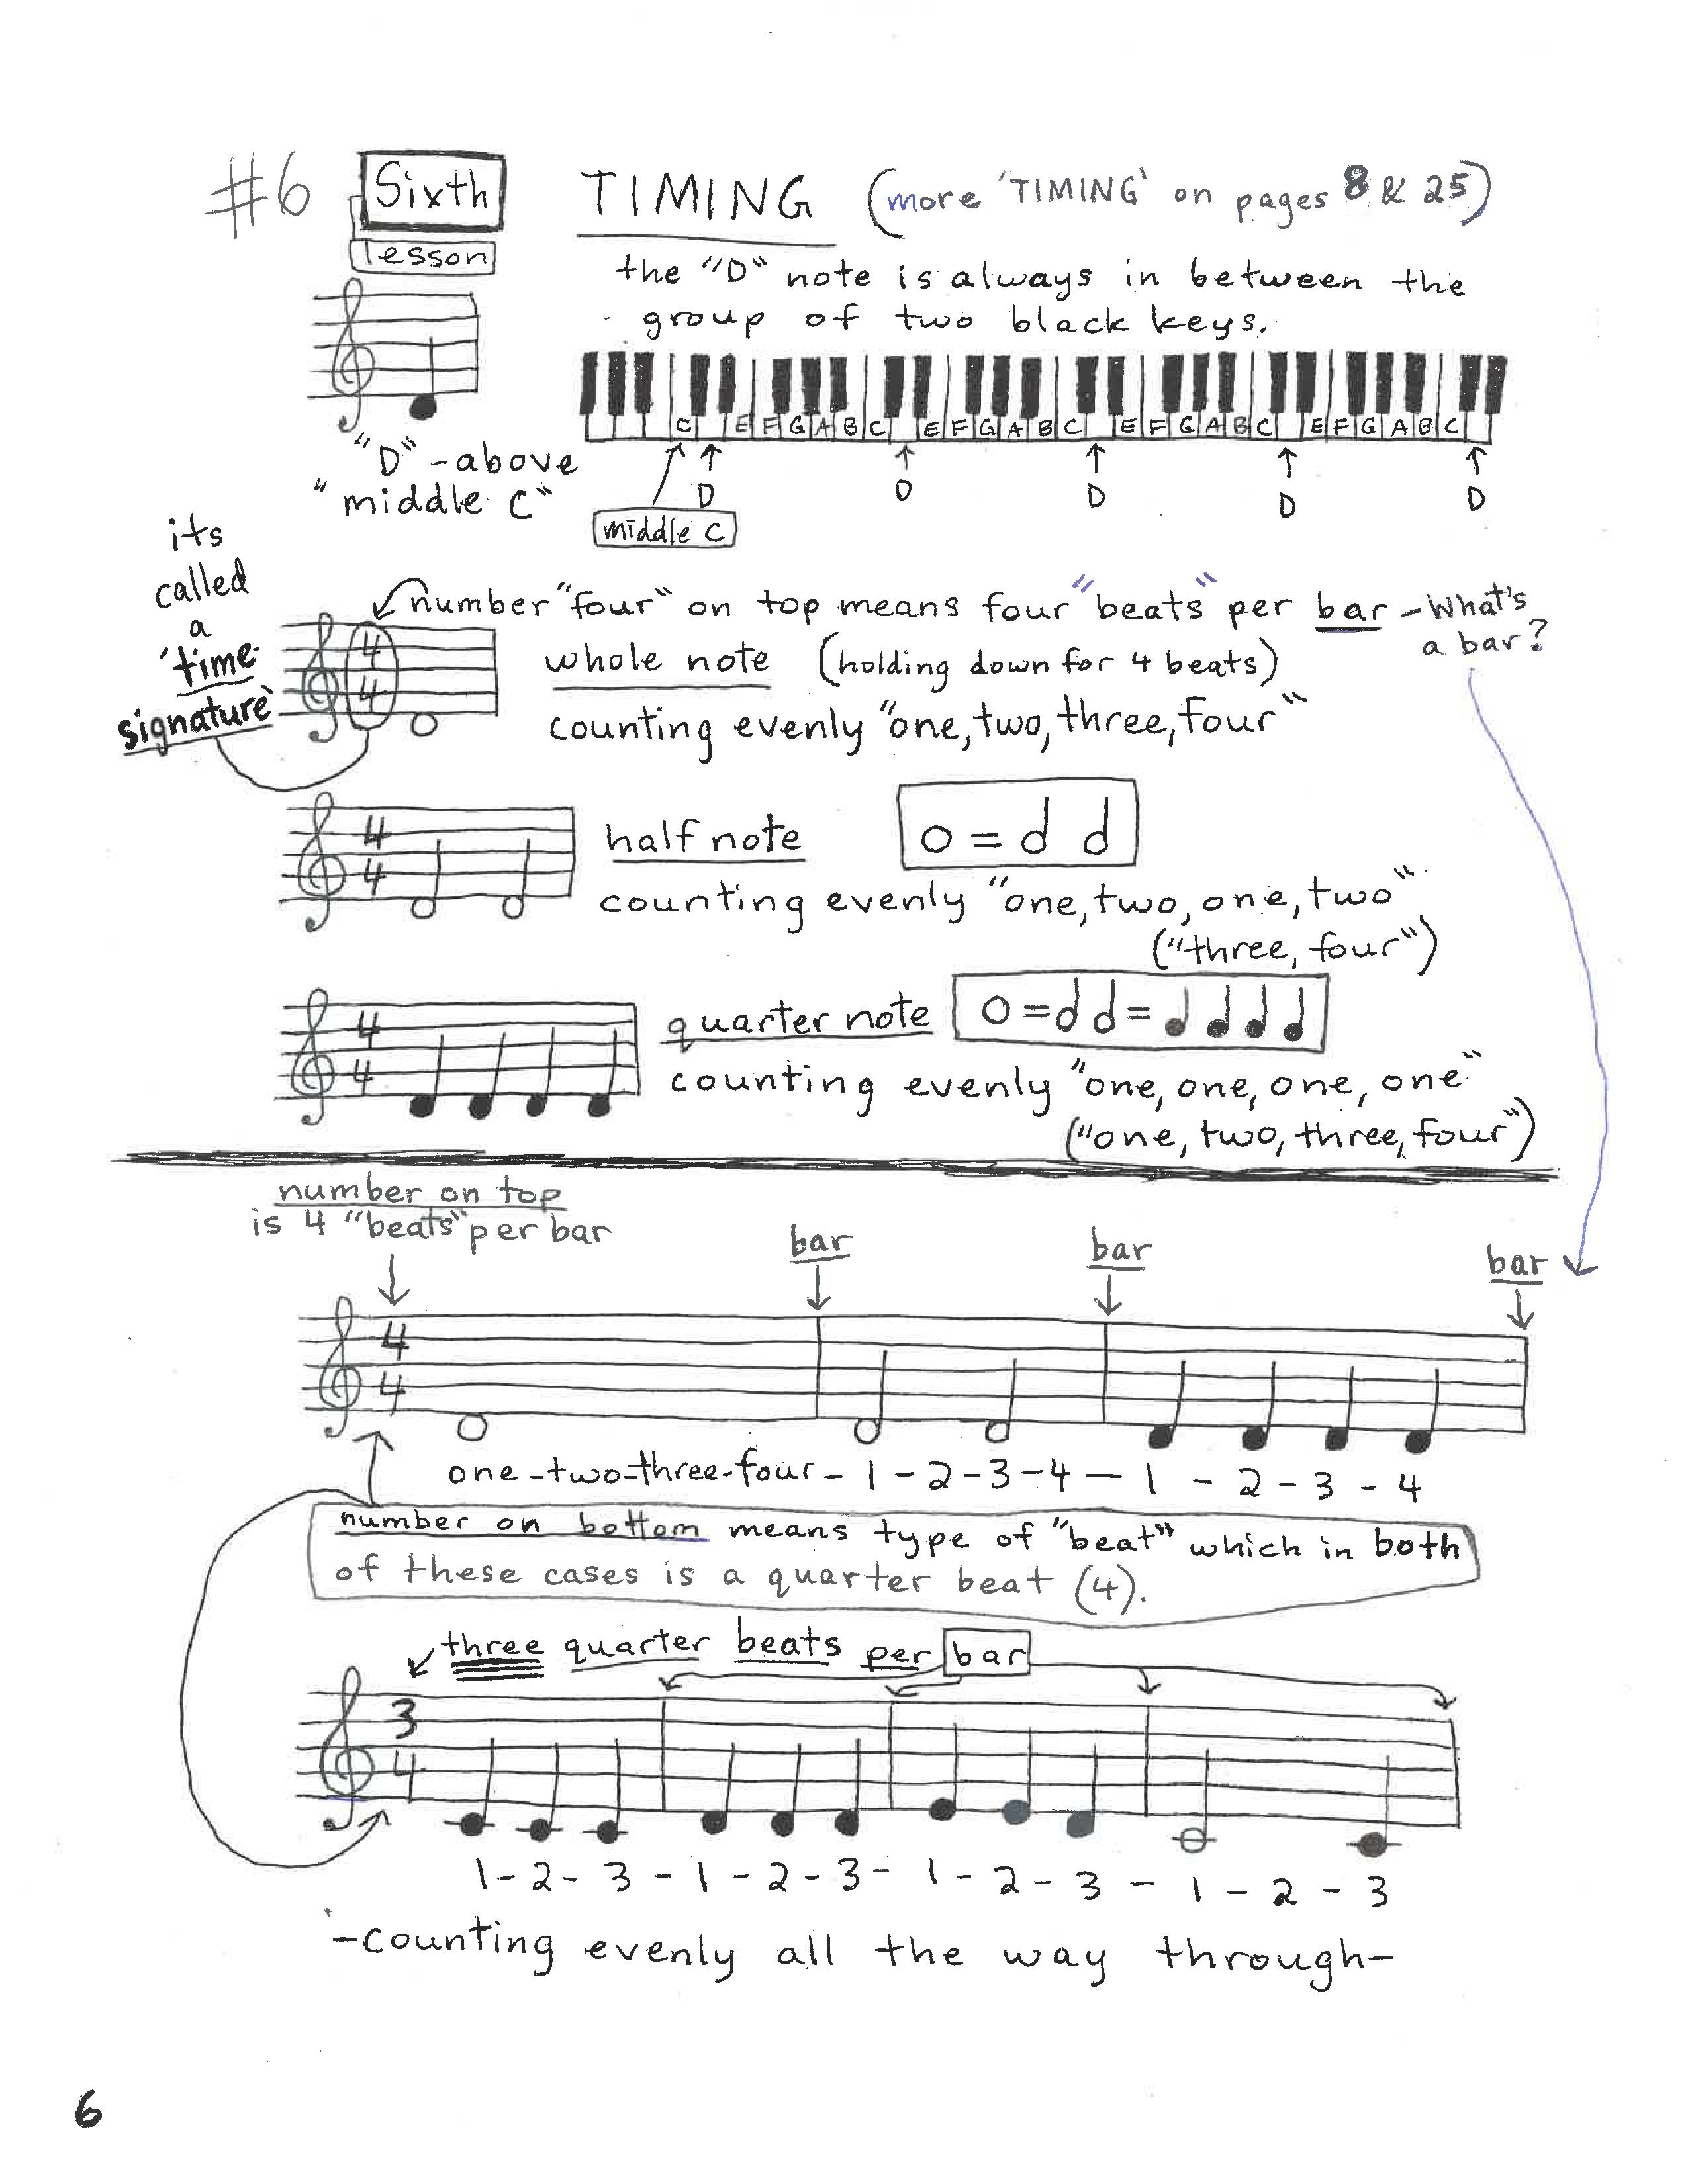 #6 Sixth TIMING (more 'TIMING' on pages 8 & 25)
lesson
the "D" note is always in between the
group of two black keys.
C E F G A B C E F G A B C E F G A B C E F G A B C
"D" - above
"middle C"
D D D D D
middle C
its
called
a
'time
signature'
number "four" on top means four "beats" per bar - What's
a bar?
4
4
whole note (holding down for 4 beats)
counting evenly "one, two, three, four"
4
4
half note o = d d
counting evenly "one, two, one, two"
("three, four")
4
4
quarter note o = d d = ♩ ♩ ♩ ♩
counting evenly "one, one, one, one"
("one, two, three, four")
number on top
is 4 "beats" per bar
bar bar bar
4
4
one - two - three - four - 1 - 2 - 3 - 4 - 1 - 2 - 3 - 4
number on bottom means type of "beat" which in both
of these cases is a quarter beat (4).
three quarter beats per bar
3
4
1 - 2 - 3 - 1 - 2 - 3 - 1 - 2 - 3 - 1 - 2 - 3
- counting evenly all the way through -
6